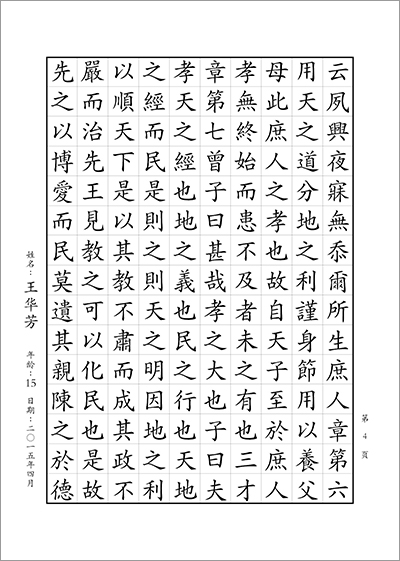 云夙興夜寐無忝爾所生庶人章第六
用天之道分地之利謹身節用以養父
母此庶人之孝也故自天子至於庶人
孝無終始而患不及者未之有也三才
章第七曾子曰甚哉孝之大也子曰夫
孝天之經也地之義也民之行也天地
之經而民是則之則天之明因地之利
以順天下是以其教不肅而成其政不
嚴而治先王見教之可以化民也是故
先之以博愛而民莫遺其親陳之於德
第 4 页
姓名：王华芳 年龄：15 日期：二〇一五年四月